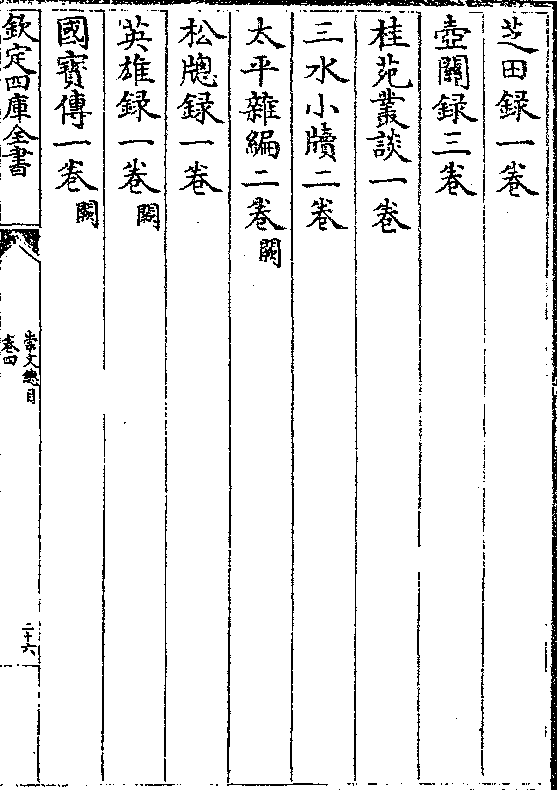 芝田録一卷
壺關録三卷
桂苑叢談一卷
三水小牘二卷
太平雜編二卷闕
松牕録一卷
英雄録一卷闕
國寳傳一卷闕
欽定四庫全書
崇文總目
卷四
二十六